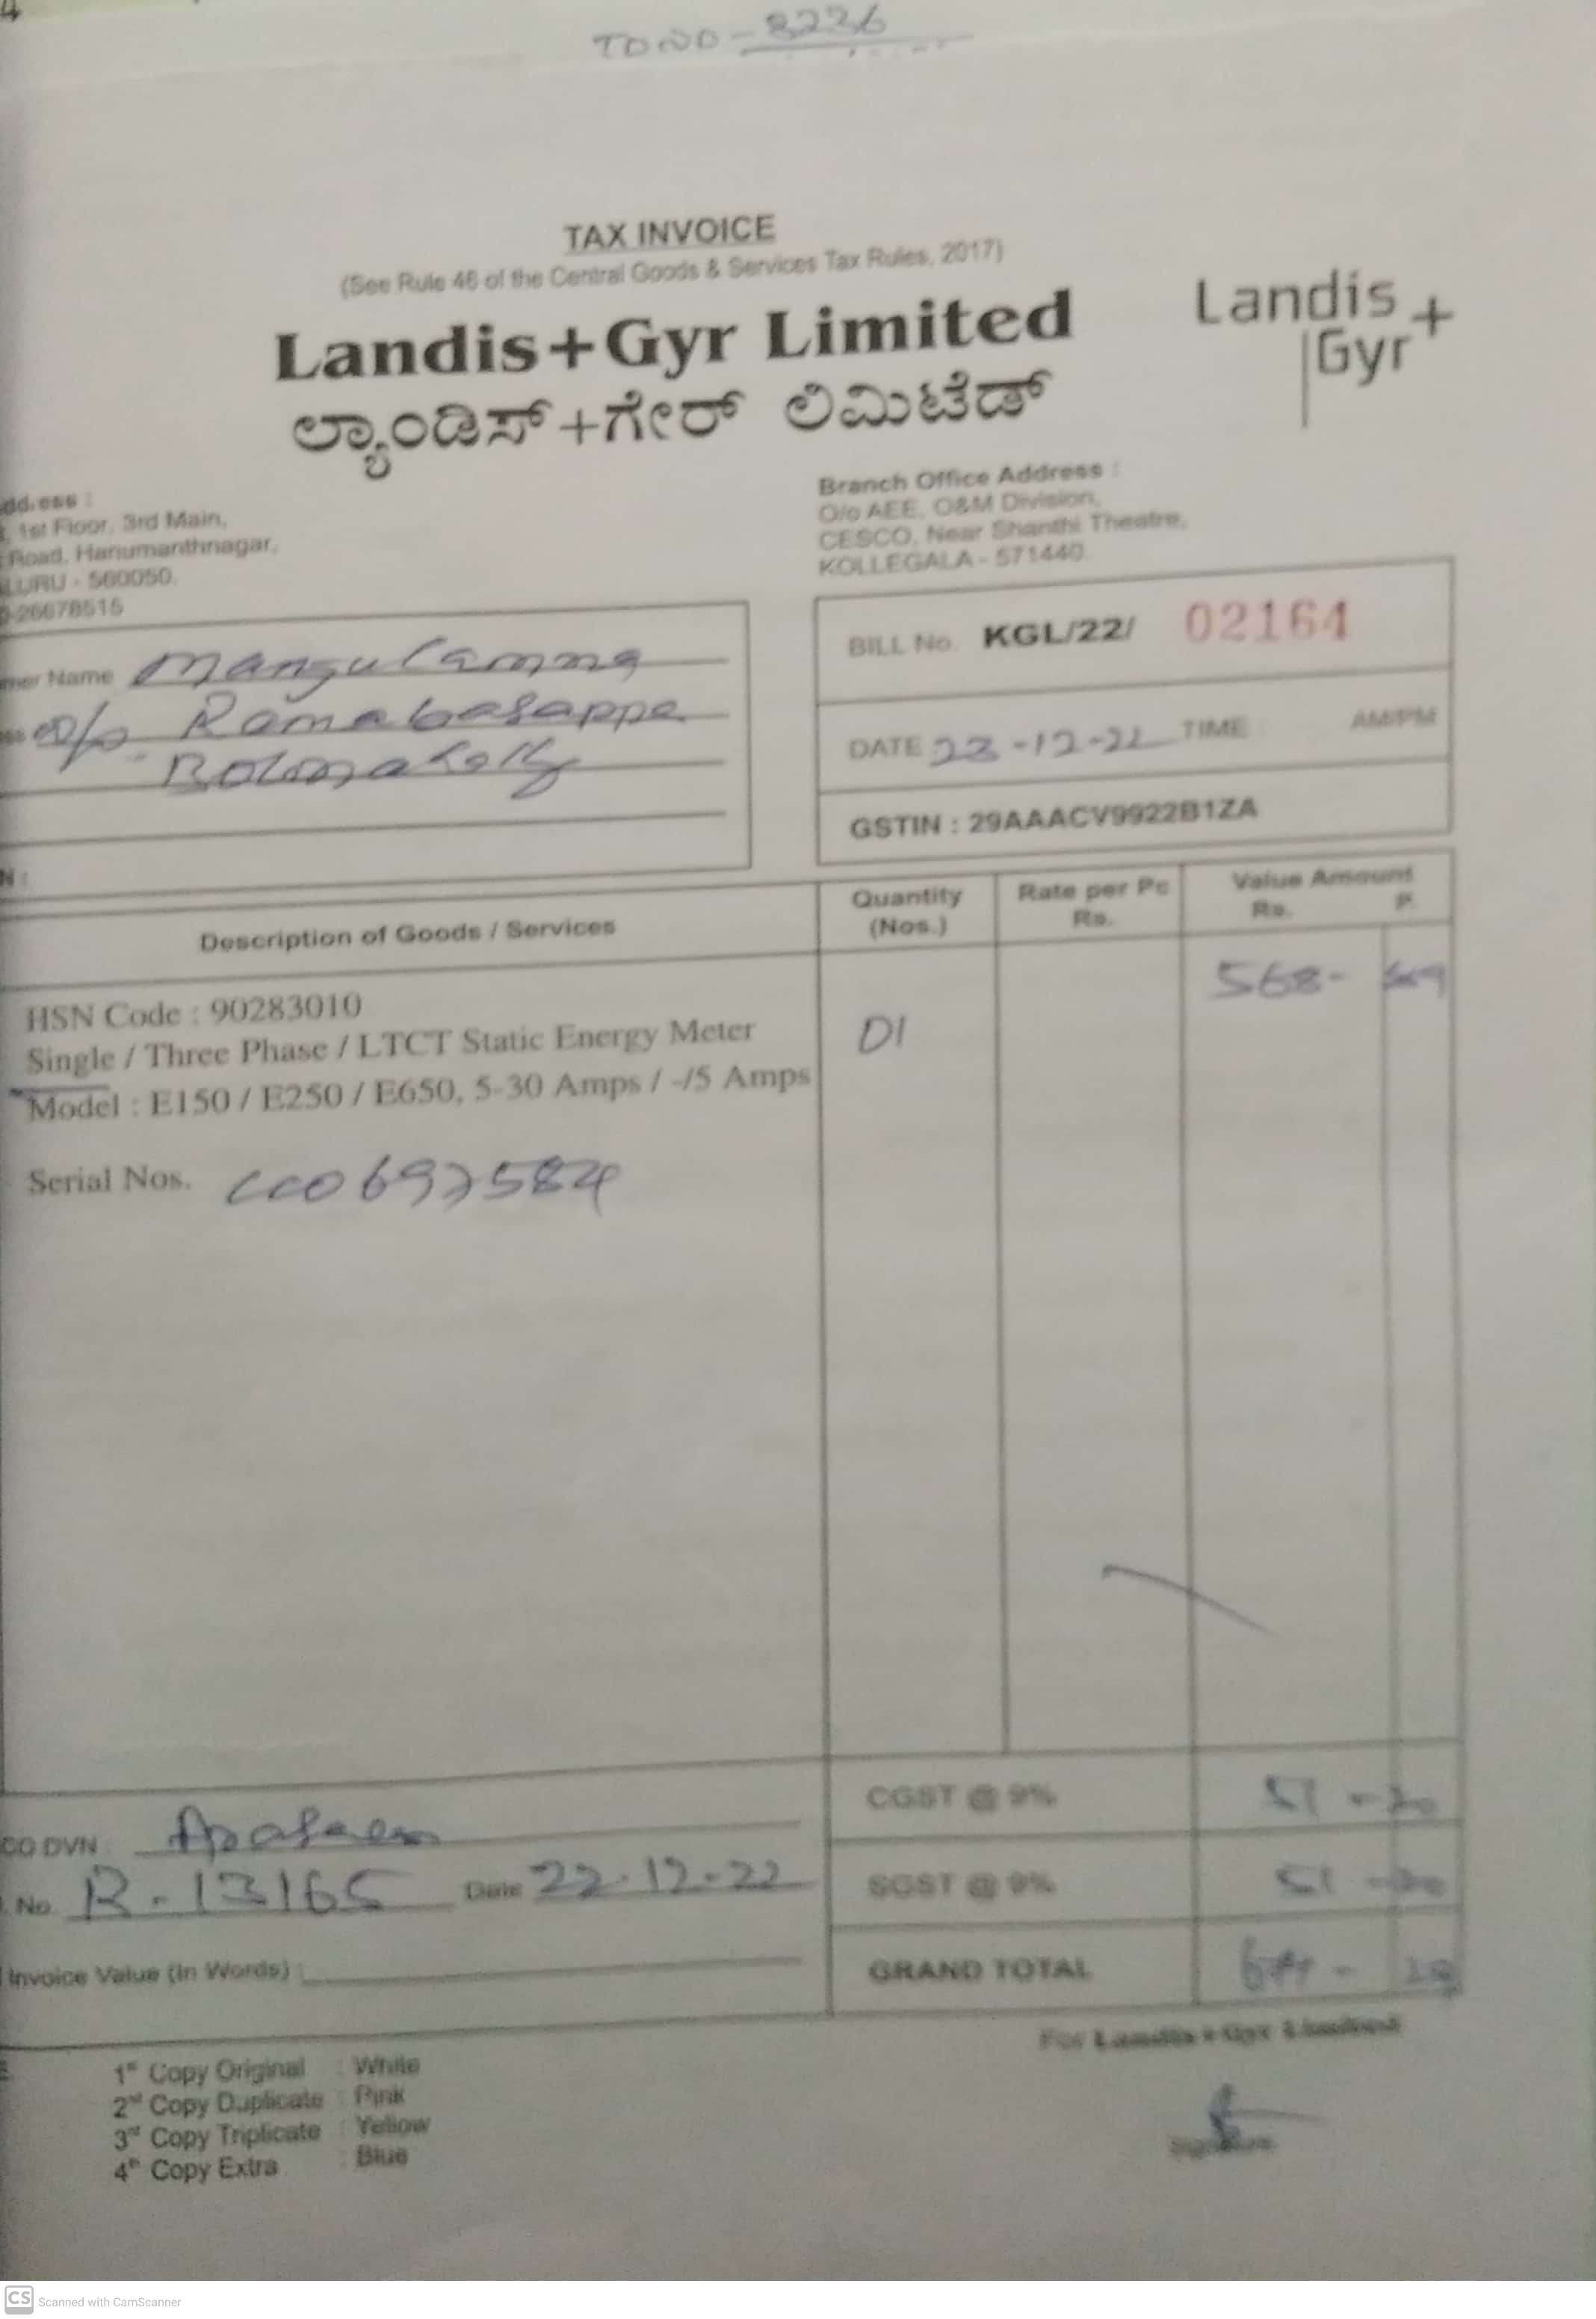 TAX INVOICE
(See Rule 46 of the Central Goods & Services Tax Rules, 2017)
Landis+Gyr Limited
ಲ್ಯಾಂಡಿಸ್+ಗೇರ್ ಲಿಮಿಟೆಡ್
Landis
Gyr+
ddress :
1st Floor, 3rd Main,
Road, Hanumanthnagar,
LURU - 560050.
-26678515
Branch Office Address :
O/o AEE, O&M Division,
CESCO, Near Shanthi Theatre,
KOLLEGALA - 571440.
mer Name
Ramabasappa
BILL No. KGL/22/ 02164
DATE 23-12-22 TIME : AM/PM
GSTIN : 29AAACV9922B1ZA
N :
Description of Goods / Services
Quantity
(Nos.)
Rate per Pc
Rs.
Value Amount
Rs. P.
HSN Code : 90283010
Single / Three Phase / LTCT Static Energy Meter
Model : E150 / E250 / E650, 5-30 Amps / -/5 Amps
01
568-
Serial Nos.
CO DVN
No. R-13165 Date 22-12-22
Invoice Value (In Words) :
CGST @ 9% 51
SGST @ 9% 51
GRAND TOTAL
For Landis+Gyr Limited
1st Copy Original : White
2nd Copy Duplicate : Pink
3rd Copy Triplicate : Yellow
4th Copy Extra : Blue
CS Scanned with CamScanner